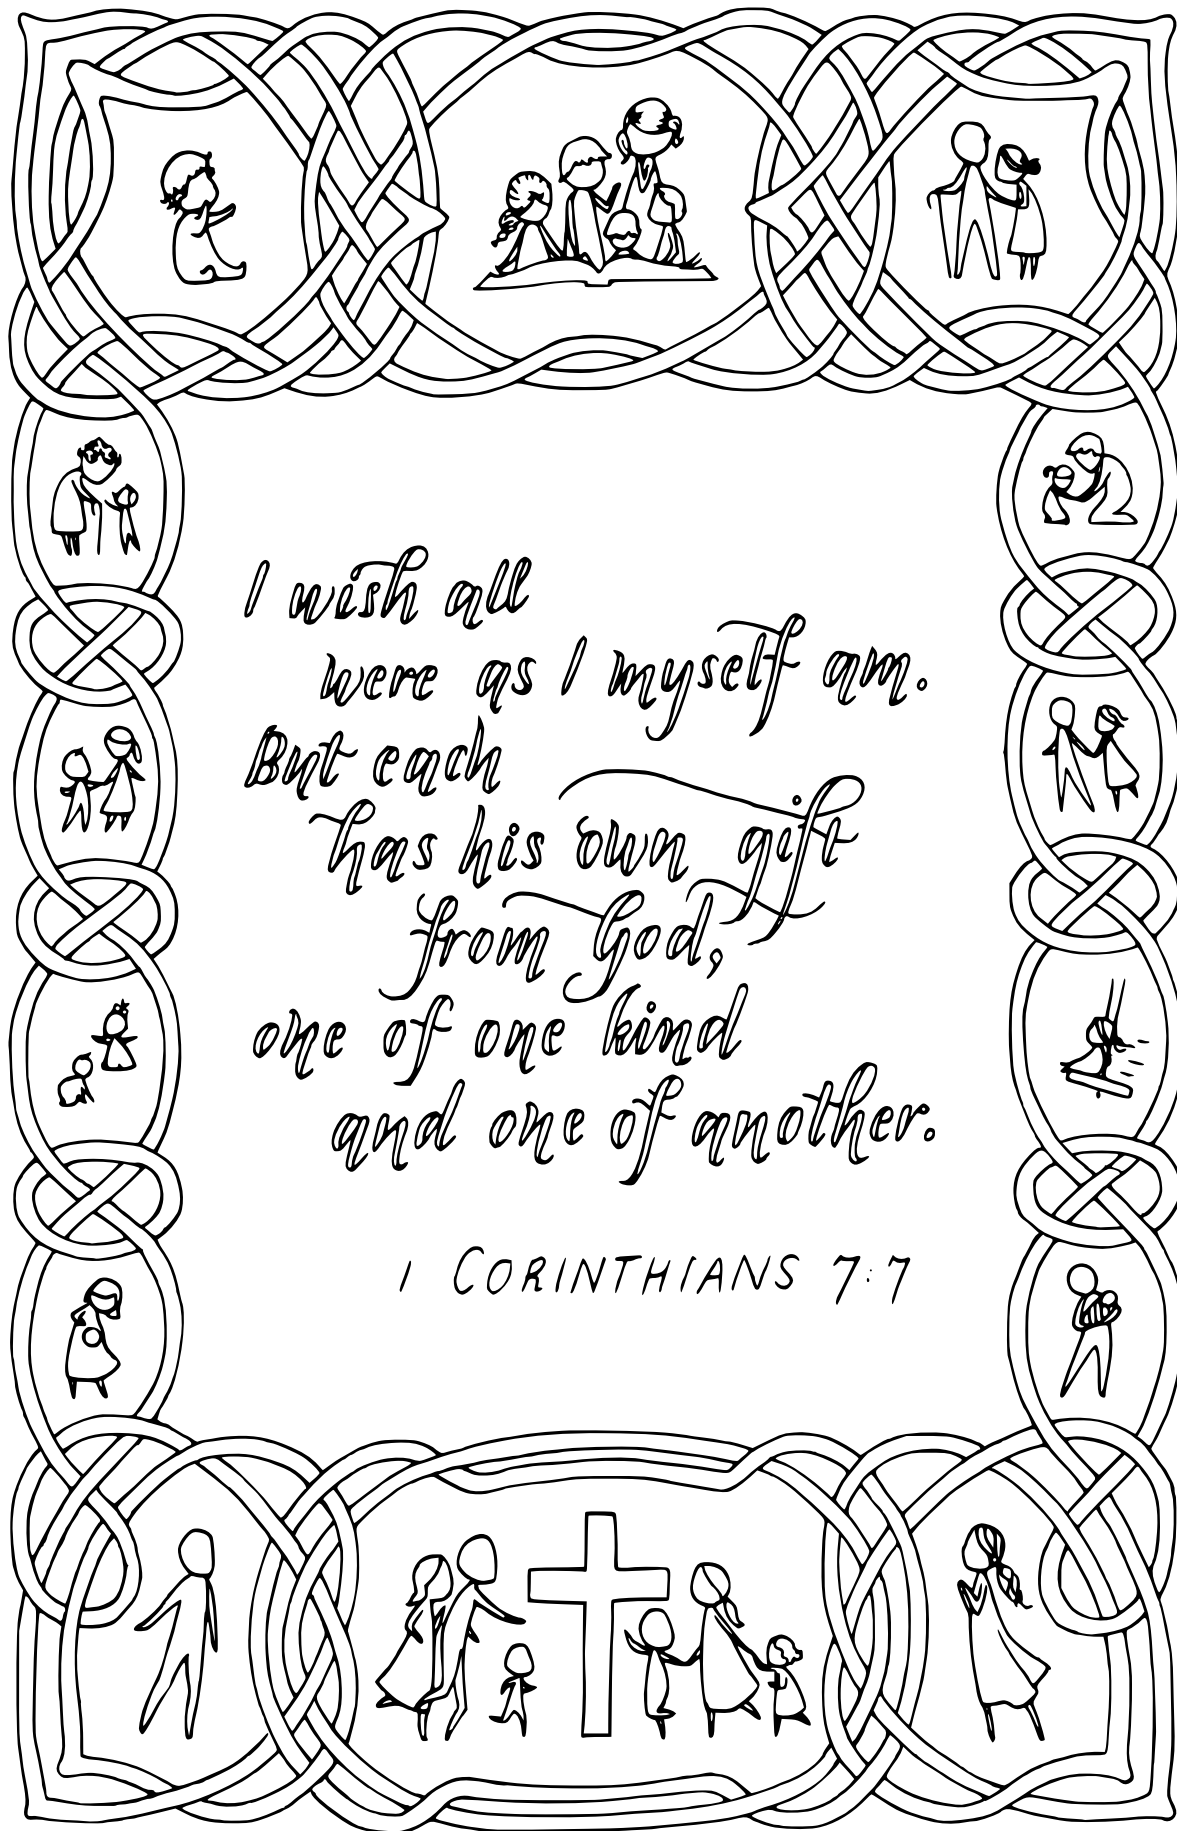 I wish all
were as I myself am.
But each
has his own gift
from God,
one of one kind
and one of another.
1 CORINTHIANS 7:7